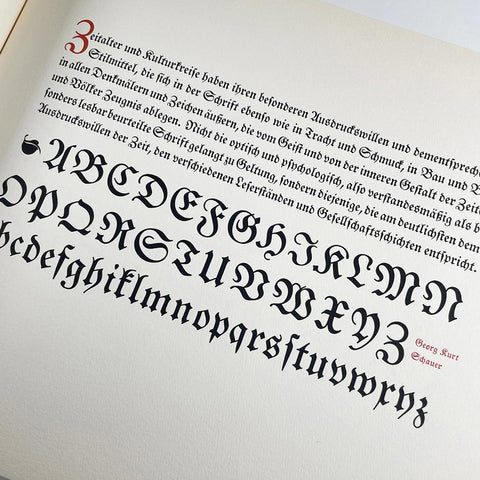 Zeitalter und Kulturkreise haben ihren besonderen Ausdruckswillen und dementspreche
Stilmittel, die sich in der Schrift ebenso wie in Tracht und Schmuck, in Bau und B
in allen Denkmälern und Zeichen äußern, die vom Geist und von der inneren Gestalt der Zeite
und Völker Zeugnis ablegen. Nicht die optisch und psychologisch, also verstandesmäßig als b
sonders lesbar beurteilte Schrift gelangt zu Geltung, sondern diejenige, die am deutlichsten dem
Ausdruckswillen der Zeit, den verschiedenen Leserständen und Gesellschaftsschichten entspricht.
ABCDEFGHIKLMN
OPQRSTUVWXYZ
Georg Kurt
Schauer
bcdefghiklmnopqrsſtuvwxyz